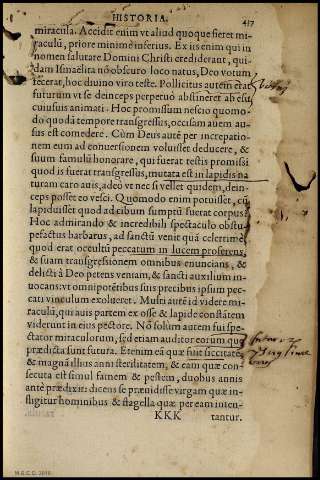 HISTORIA. 417
miracula. Accidit enim vt aliud quoque fieret mi-
raculū, priore minimè inferius. Ex iis enim qui in
nomen salutare Domini Christi crediderant, qui-
dam Ismaelita nō obscuro loco natus, Deo votum
fecerat, hoc diuino viro teste. Pollicitus autem erat
futurum vt se deinceps perpetuò abstineret ab esu
cuiusuis animati. Hoc promissum nescio quomo-
do quodā tempore transgressus, occisam auem au-
sus est comedere. Cùm Deus autē per increpatio-
nem eum ad conuersionem voluisset deducere, &
suum famulū honorare, qui fuerat testis promissi
quod is fuerat transgressus, mutata est in lapidis na
turam caro auis, adeò vt nec si vellet quidem, dein-
ceps posset eo vesci. Quomodo enim potuisset, cū
lapiduisset quod ad cibum sumptū fuerat corpus?
Hoc admirando & incredibili spectaculo obstu-
pefactus barbarus, ad sanctū venit quā celerrimè,
quod erat occultū peccatum in lucem proferens,
& suam transgressionem omnibus enuncians, &
delicti à Deo petens veniam, & sancti auxilium in-
uocans: vt omnipotētibus suis precibus ipsum pec-
cati vinculum exolueret. Multi autē id videre mi-
raculū, qui auis partem ex osse & lapide constātem
viderunt in eius pectore. Nō solùm autem fui spe-
ctator miraculorum, sed etiam auditor eorum quę
prædicta sunt futura. Etenim eā quæ fuit siccitatē,
& magnā illius anni sterilitatem, & eam quæ con-
secuta est simul famem & pestem, duobus annis
antè prædixit: dicens se præuidisse virgam quæ in-
fligitur hominibus & flagella quæ per eam inten-
KKK tantur.
M.E.C.D. 2016